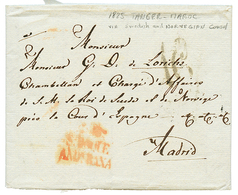 1825 TANGER - MAROC
via Swedish and Norwegian Consul
Monsieur
Monsieur G. D. de Lorichs
Chambellan et Chargé d'Affaires
de S. M. le Roi de Suède et de Norvège
près la Cour d'Espagne &c. &c. &c.
Madrid